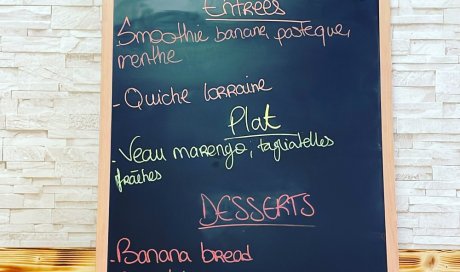 Entrées
Smoothie banane, pasteque,
menthe
- Quiche lorraine
Plat
- Veau marengo, tagliatelles
fraîches
DESSERTS
- Banana bread